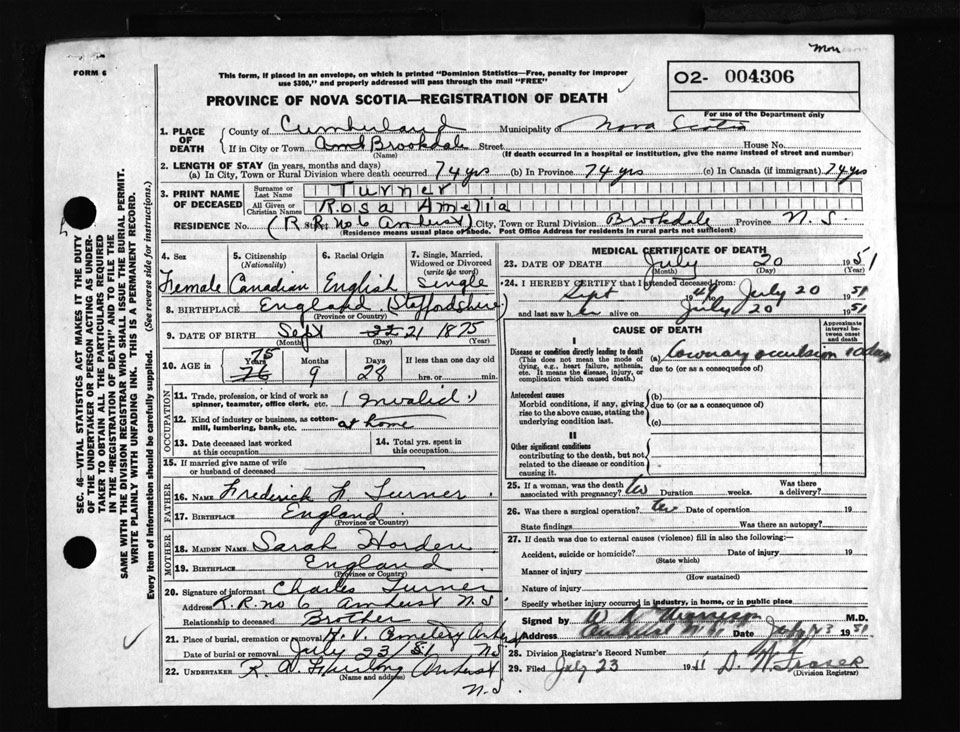 Mon
FORM 6
This form, if placed in an envelope, on which is printed "Dominion Statistics—Free, penalty for improper
use $300," and properly addressed will pass through the mail "FREE"
PROVINCE OF NOVA SCOTIA—REGISTRATION OF DEATH
O2- 004306
For use of the Department only
1. PLACE OF DEATH
County of Cumberland Municipality of Nova Scotia
If in City or Town Amh Brookdale Street House No.
(Name) (If death occurred in a hospital or institution, give the name instead of street and number)
2. LENGTH OF STAY (in years, months and days)
(a) In City, Town or Rural Division where death occurred 74 yrs (b) In Province 74 yrs (c) In Canada (if immigrant) 74 yrs
3. PRINT NAME OF DECEASED
Surname or Last Name Turner
All Given or Christian Names Rosa Amelia
RESIDENCE No. (R.R. no 6 Amherst) City, Town or Rural Division Brookdale Province N. S.
(Residence means usual place of abode. Post Office Address for residents in rural parts not sufficient)
4. Sex
Female
5. Citizenship (Nationality)
Canadian
6. Racial Origin
English
7. Single, Married, Widowed or Divorced (write the word)
Single
8. BIRTHPLACE England (Staffordshire)
(Province or Country)
9. DATE OF BIRTH Sept 21 1875
(Month) (Year)
10. AGE in 76 75 Years 9 Months 28 Days If less than one day old
hrs. or min.
OCCUPATION
11. Trade, profession, or kind of work as spinner, teamster, office clerk, etc. (Invalid.)
12. Kind of industry or business, as cotton-mill, lumbering, bank, etc. at home
13. Date deceased last worked at this occupation
14. Total yrs. spent in this occupation
15. If married give name of wife or husband of deceased
FATHER
16. NAME Frederick F. Turner
17. BIRTHPLACE England
(Province or Country)
MOTHER
18. MAIDEN NAME Sarah Horden
19. BIRTHPLACE England
(Province or Country)
20. Signature of informant Charles Turner
Address R.R. no 6 Amherst N.S
Relationship to deceased Brother
21. Place of burial, cremation or removal Cemetery
Date of burial or removal July 23/51 N.S.
22. UNDERTAKER R. Furlong Amherst
(Name and address) N.S.
MEDICAL CERTIFICATE OF DEATH
23. DATE OF DEATH July 20 1951
(Month) (Day) (Year)
24. I HEREBY CERTIFY that I attended deceased from:
Sept 1949 to July 20 1951
and last saw her alive on July 20 1951
CAUSE OF DEATH
Approximate interval between onset and death
I
Disease or condition directly leading to death
(This does not mean the mode of dying, e.g., heart failure, asthenia, etc. It means the disease, injury, or complication which caused death.)
(a) Coronary occulsion
due to (or as a consequence of)
Antecedent causes
Morbid conditions, if any, giving rise to the above cause, stating the underlying condition last.
(b)
due to (or as a consequence of)
(c)
II
Other significant conditions
contributing to the death, but not related to the disease or condition causing it.
25. If a woman, was the death associated with pregnancy? Duration weeks. Was there a delivery?
26. Was there a surgical operation? Date of operation 19
State findings Was there an autopsy?
27. If death was due to external causes (violence) fill in also the following:—
Accident, suicide or homicide? Date of injury 19
(State which)
Manner of injury
(How sustained)
Nature of injury
Specify whether injury occurred in industry, in home, or in public place
Signed by M.D.
Address Amherst N.S. Date July 23 1951
28. Division Registrar's Record Number
29. Filed July 23 1951
(Division Registrar)
SEC. 46—VITAL STATISTICS ACT MAKES IT THE DUTY
OF THE UNDERTAKER OR PERSON ACTING AS UNDER-
TAKER TO OBTAIN ALL THE PARTICULARS REQUIRED
IN THE "REGISTRATION OF DEATH" AND TO FILE THE
SAME WITH THE DIVISION REGISTRAR WHO SHALL ISSUE THE BURIAL PERMIT.
WRITE PLAINLY WITH UNFADING INK. THIS IS A PERMANENT RECORD.
Every item of information should be carefully supplied. (See reverse side for instructions.)